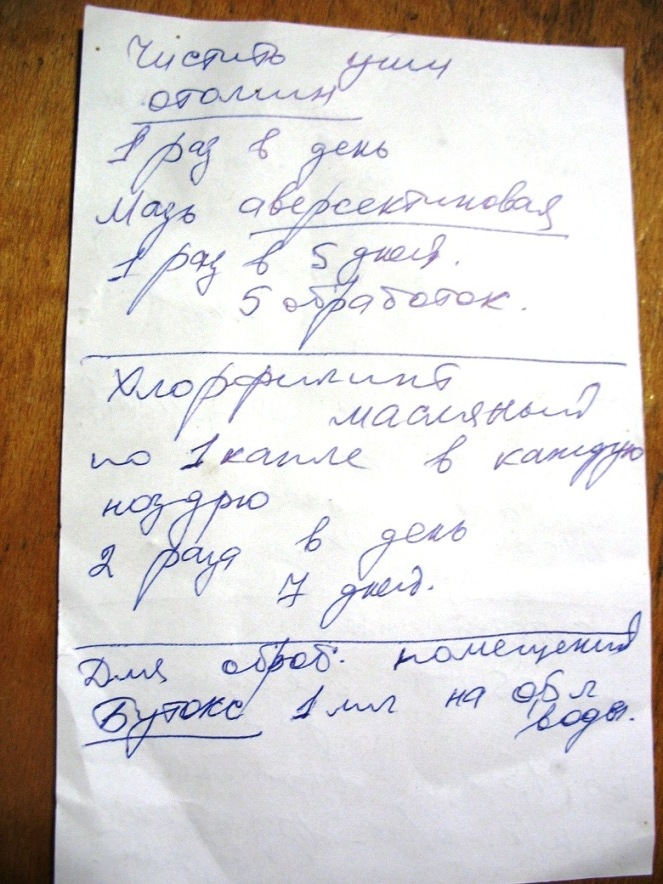 Чистить уши
отомин
1 раз в день
Мазь аверсектиновая
1 раз в 5 дней.
5 обработок.
Хлорфилипт
масляный
по 1 капле в каждую
ноздрю
2 раза в день
7 дней.
Для обраб. помещений
Бутокс 1 мл на 0,5 л
воды.